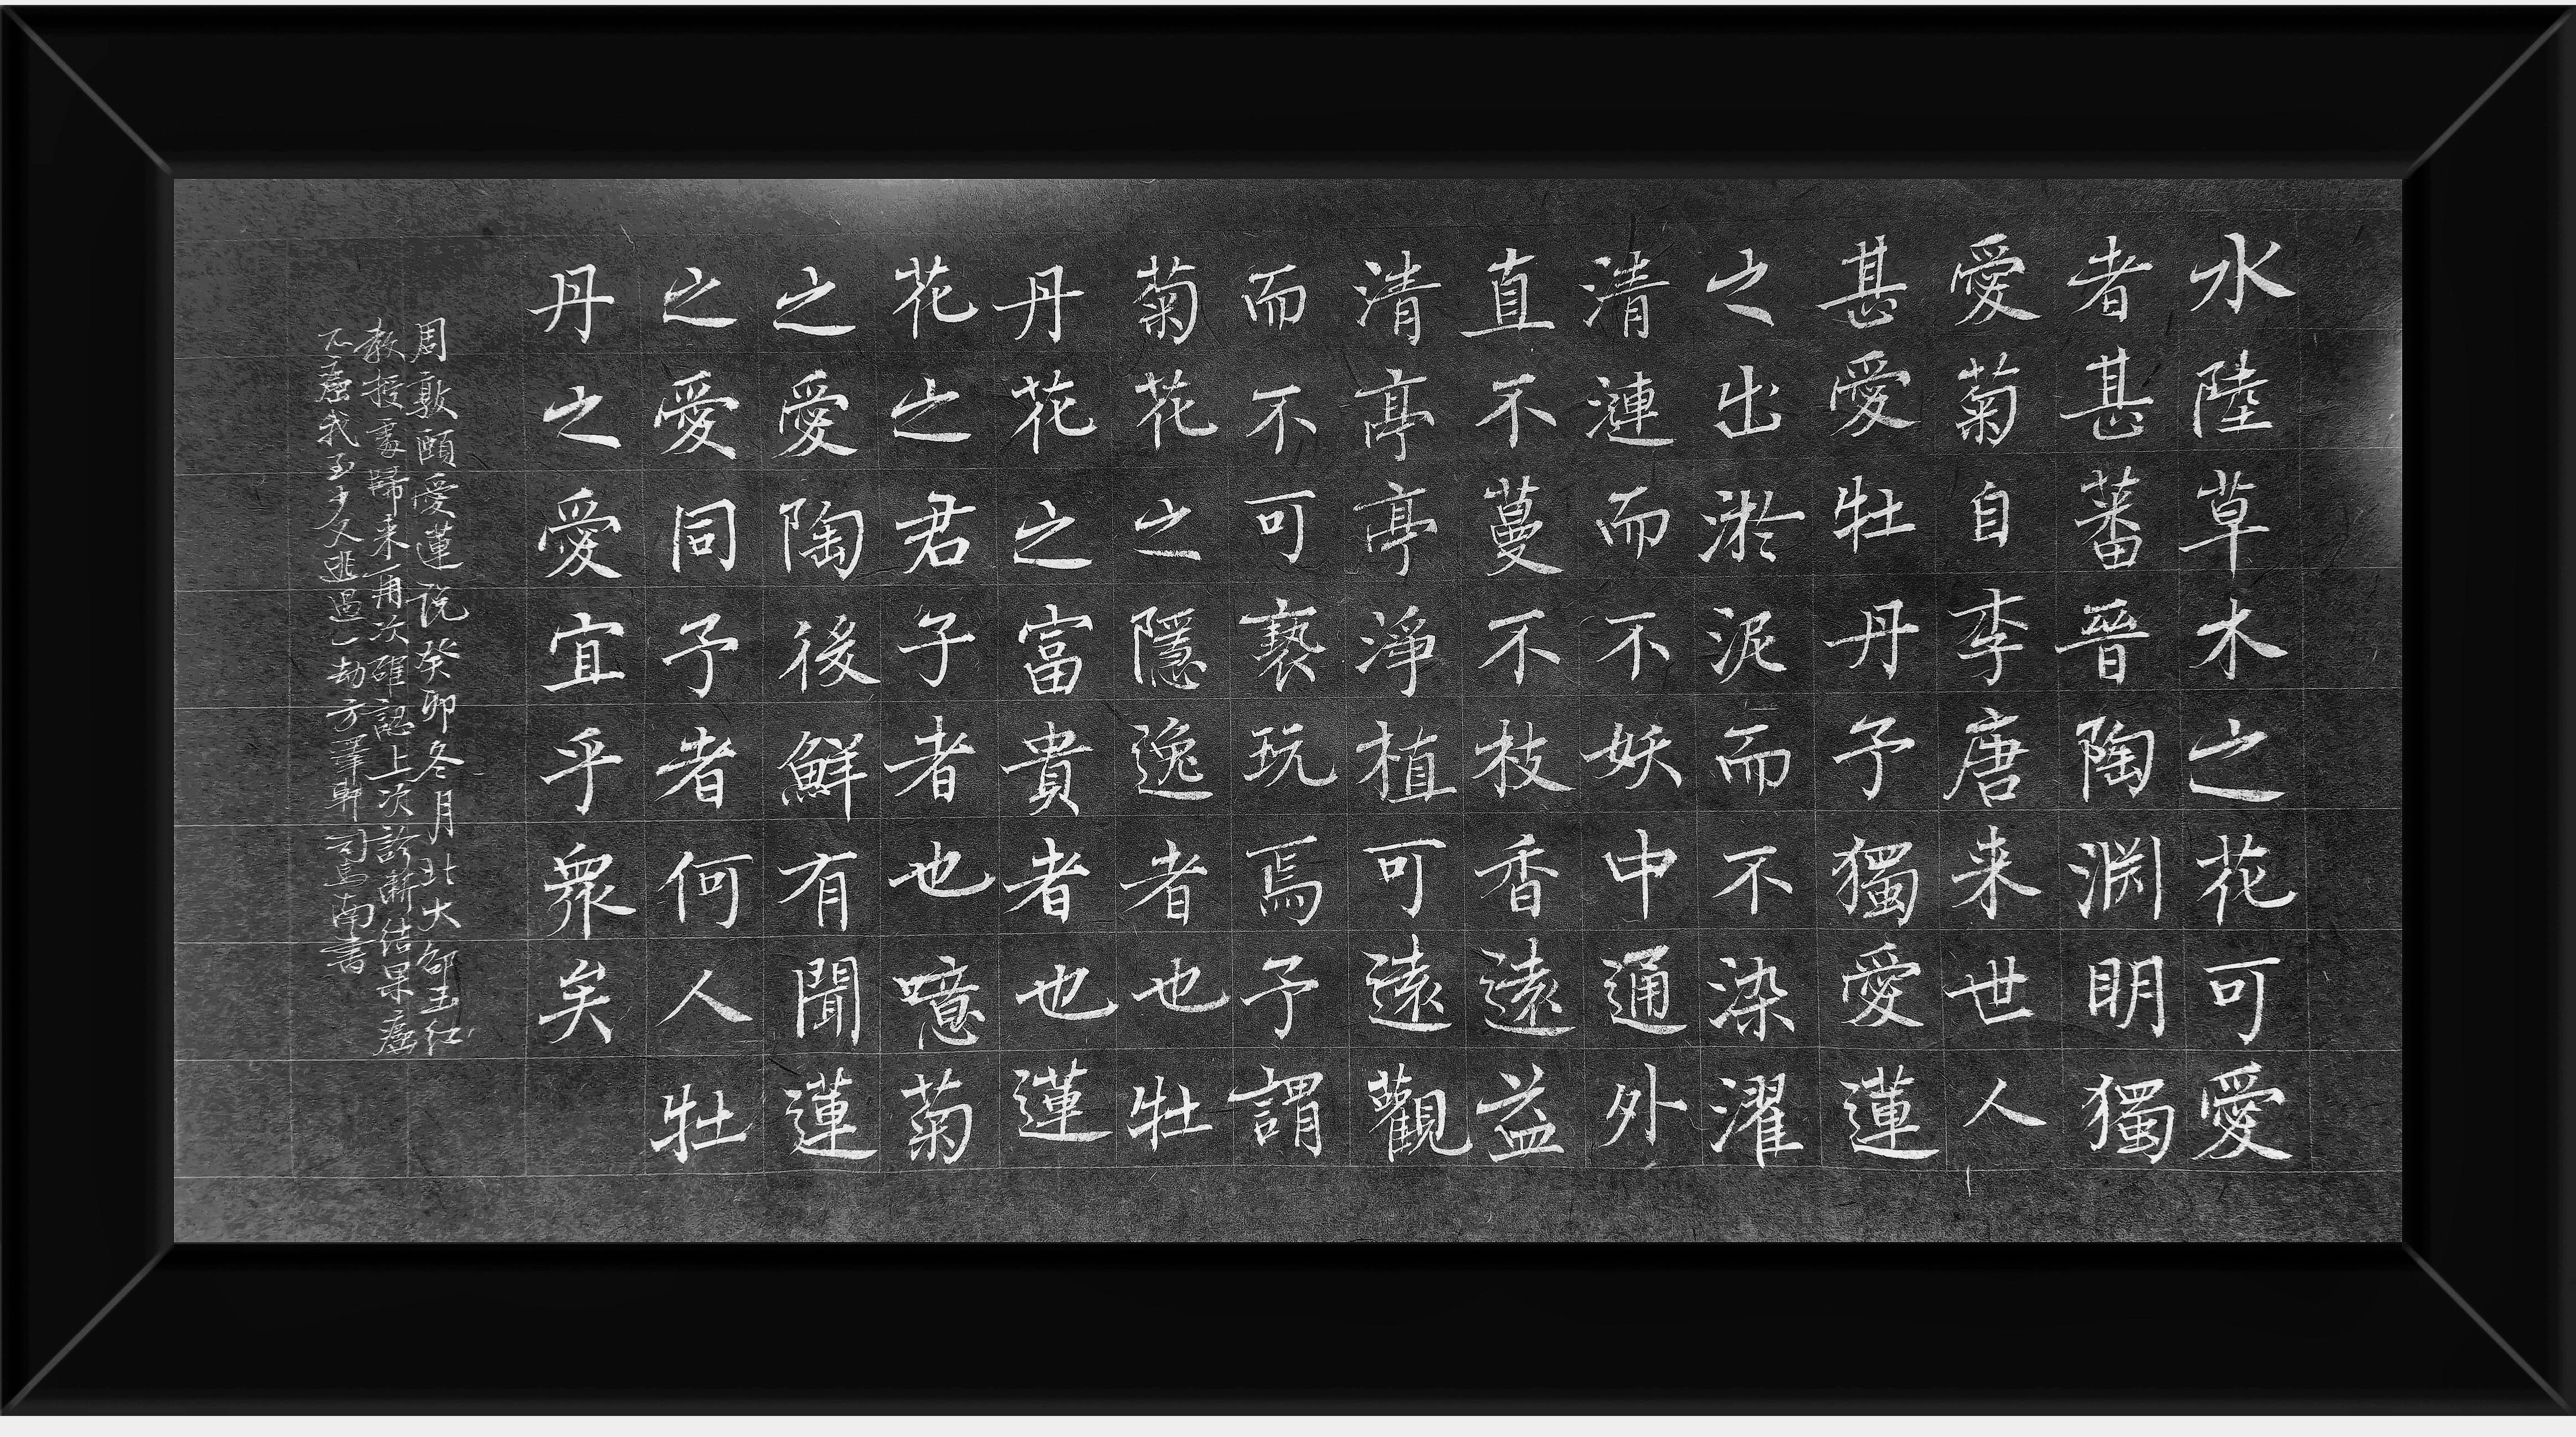 水陸草木之花可愛
者甚蕃晉陶淵明獨
愛菊自李唐来世人
甚愛牡丹予獨愛蓮
之出淤泥而不染濯
清漣而不妖中通外
直不蔓不枝香遠益
清亭亭淨植可遠觀
而不可褻玩焉予謂
菊花之隱逸者也牡
丹花之富貴者也蓮
花之君子者也噫菊
之愛陶後鮮有聞蓮
之愛同予者何人牡
丹之愛宜乎衆矣
周敦頤愛蓮說癸卯冬月北大邵玉红
教授處歸来再次確認上次診斷結果癌
不癌我至少又逃過一劫方澤軒司馬南書